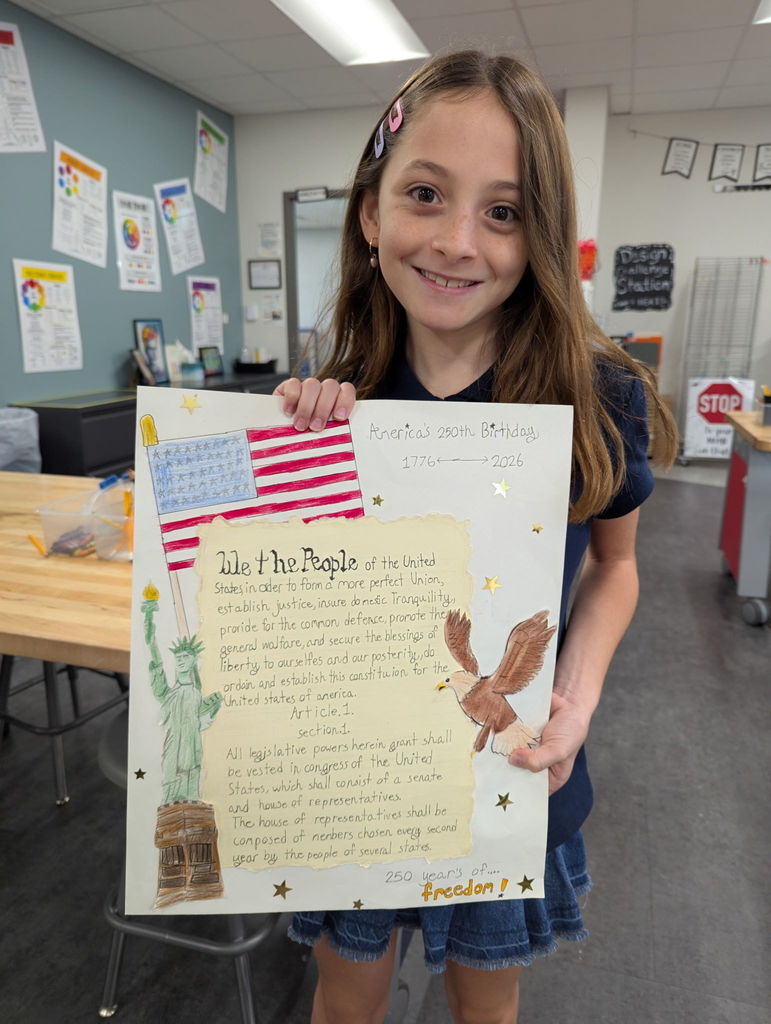 America's 250th Birthday
1776 ⟷ 2026
We the People of the United
States, in order to form a more perfect Union,
establish justice, insure domestic Tranquility,
provide for the common defence, promote the
general walfare, and secure the blessings of
liberty, to ourselfes and our posterity, do
ordain and establish this constituion for the
United states of america.
Article.1.
section.1.
All legislative powers herein grant shall
be vested in congress of the United
States, which shall consist of a senate
and house of representatives.
The house of representatives shall be
composed of nenbers chosen every second
year by the people of several states.
250 year's of....
freedom!
Design
Challenge
Station
STOP